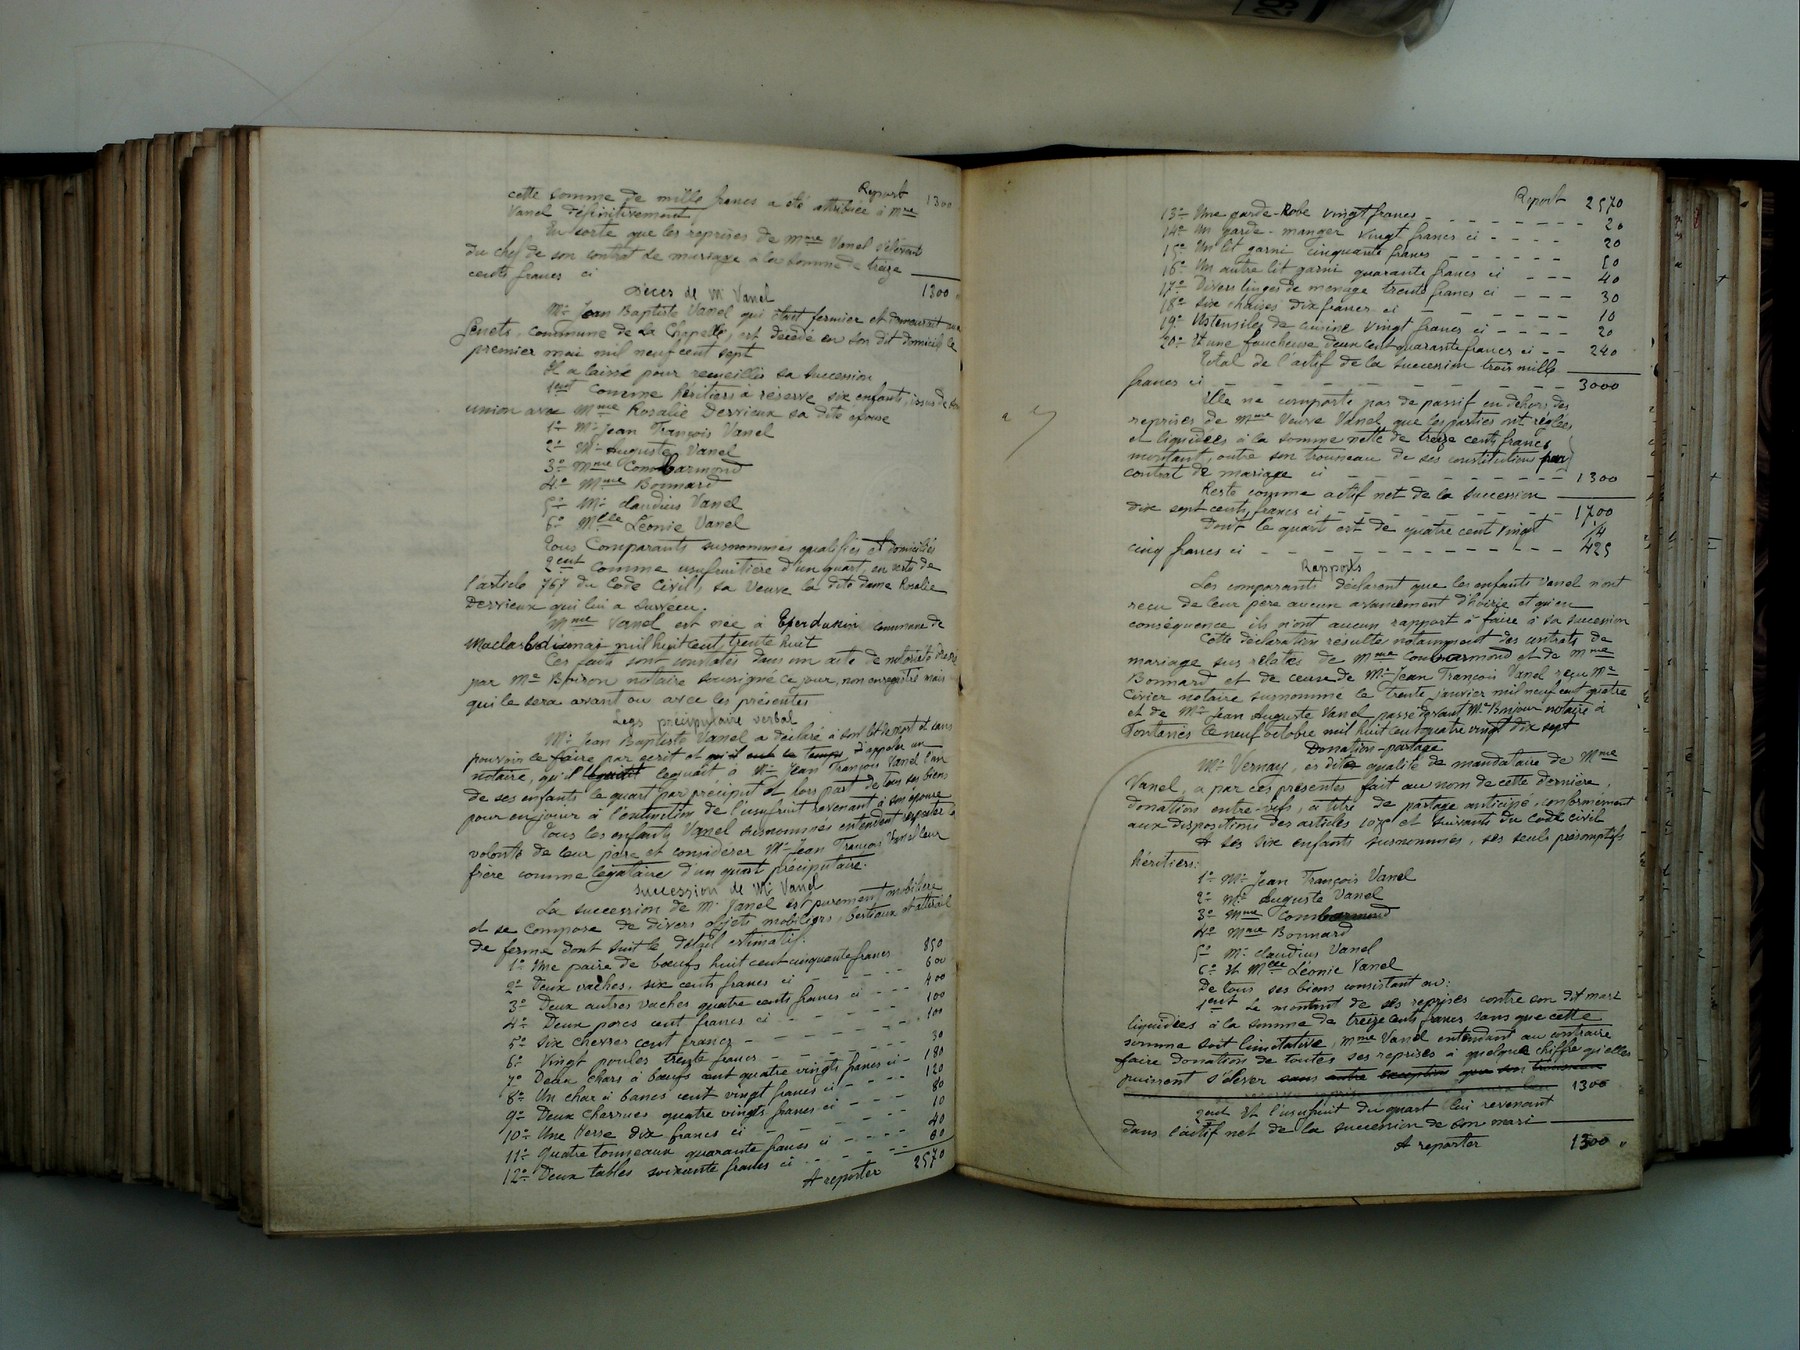 Report 1300
cette somme de mille francs a été attribuée à Mme
Vanel définitivement
En sorte que les reprises de Mme Vanel s'élèvent
du chef de son contrat de mariage à la somme de treize
cents francs ci 1300
Décès de Mr Vanel
Mr Jean Baptiste Vanel qui était fermier et demeurait aux
Genets, commune de La Chapelle, est décédé en son dit domicile le
premier mai mil neuf cent sept
Il a laissé pour recueillir sa succession
1ent Comme héritiers à réserve six enfants, issus de son
union avec Mme Rosalie Dervieux sa dite épouse
1o Mr Jean François Vanel
2o Mr Auguste Vanel
3o Mme Combarmond
4o Mme Bonnard
5o Mr Claudius Vanel
6o Melle Léonie Vanel
Tous Comparants susnommés qualifiés et domiciliés
2ent Comme usufruitière d'un quart, en vertu de
l'article 767 du Code Civil, sa Veuve la dite dame Rosalie
Dervieux qui lui a survécu.
Mme Vanel est née à commune de
Maclas le dix mai mil huit cent trente huit
Ces faits sont constatés dans un acte de notoriété dressé
par Me Boiron notaire soussigné ce jour, non enregistré mais
qui le sera avant ou avec les présentes
Legs préciputaire verbal
Mr Jean Baptiste Vanel a déclaré à son lit de mort et sans
pouvoir le faire par écrit et qu'il eut le temps d'appeler un
notaire, qu'il léguait à Mr Jean François Vanel l'un
de ses enfants le quart par préciput et hors part de tous ses biens
pour en jouir à l'extinction de l'usufruit revenant à son épouse
Tous les enfants Vanel susnommés entendent respecter la
volonté de leur père et considérer Mr Jean François Vanel leur
frère comme légataire d'un quart préciputaire.
Succession de Mr Vanel
La succession de Mr Vanel est purement mobilière
et se compose de divers objets mobiliers, bestiaux et attirail
de ferme dont suit le détail estimatif:
1o Une paire de bœufs huit cent cinquante francs 850
2o Deux vaches, six cents francs ci 600
3o Deux autres vaches quatre cents francs ci 400
4o Deux porcs cent francs ci 100
5o Six chèvres cent francs 100
6o Vingt poules trente francs 30
7o Deux chars à bœufs cent quatre vingts francs ci 180
8o Un char à bancs cent vingt francs ci 120
9o Deux charrues quatre vingts francs ci 80
10o Une Herse dix francs ci 10
11o Quatre tonneaux quarante francs ci 40
12o Deux tables soixante francs ci 60
A reporter 2570
Report 2570
13o Une garde-Robe vingt francs 20
14o Un garde-manger vingt francs ci 20
15o Un lit garni cinquante francs 50
16o Un autre lit garni quarante francs ci 40
17o Divers linges de ménage trente francs ci 30
18o Six chaises dix francs ci 10
19o Ustensiles de cuisine vingt francs ci 20
20o Et une faucheuse deux cent quarante francs ci 240
Total de l'actif de la succession trois mille
francs ci 3000
Elle ne comporte pas de passif en dehors des
reprises de Mme Veuve Vanel, que les parties ont réglées
et liquidées à la somme nette de treize cents francs
montant, outre son trousseau de ses constitutions par
contrat de mariage ci 1300
Reste comme actif net de la succession
dix sept cents francs ci 1700
Dont le quart est de quatre cent vingt 1/4
cinq francs ci 425
Rapports
Les comparants déclarent que les enfants Vanel n'ont
reçu de leur père aucun avancement d'hoirie et qu'en
conséquence ils n'ont aucun rapport à faire à sa succession
Cette déclaration résulte notamment des contrats de
mariage sus relatés de Mme Combarmond et de Mme
Bonnard et de ceux de Mr Jean François Vanel reçu Me
Civier notaire susnommé le trente janvier mil neuf cent quatre
et de Mr Jean Auguste Vanel passé devant Me Bonjour notaire à
Fontanes le neuf octobre mil huit cent quatre vingt dix sept
Donation-partage
Mr Vernay, ès dite qualité de mandataire de Mme
Vanel, a par ces présentes fait au nom de cette dernière,
donation entre-vifs, à titre de partage anticipé, conformément
aux dispositions des articles 1075 et suivants du Code civil
A ses six enfants susnommés, ses seuls présomptifs
héritiers:
1o Mr Jean François Vanel
2o Mr Auguste Vanel
3o Mme Combarmond
4o Mme Bonnard
5o Mr Claudius Vanel
6o Et Melle Léonie Vanel
De tous ses biens consistant en:
1ent Le montant de ses reprises contre son dit mari
liquidées à la somme de treize cents francs sans que cette
somme soit limitative, Mme Vanel entendant au contraire
faire donation de toutes ses reprises à quelque chiffre qu'elles
puissent s'élever sans autre exception que son trousseau
1300
2ent Et l'usufruit du quart lui revenant
dans l'actif net de la succession de son mari
A reporter 1300 "